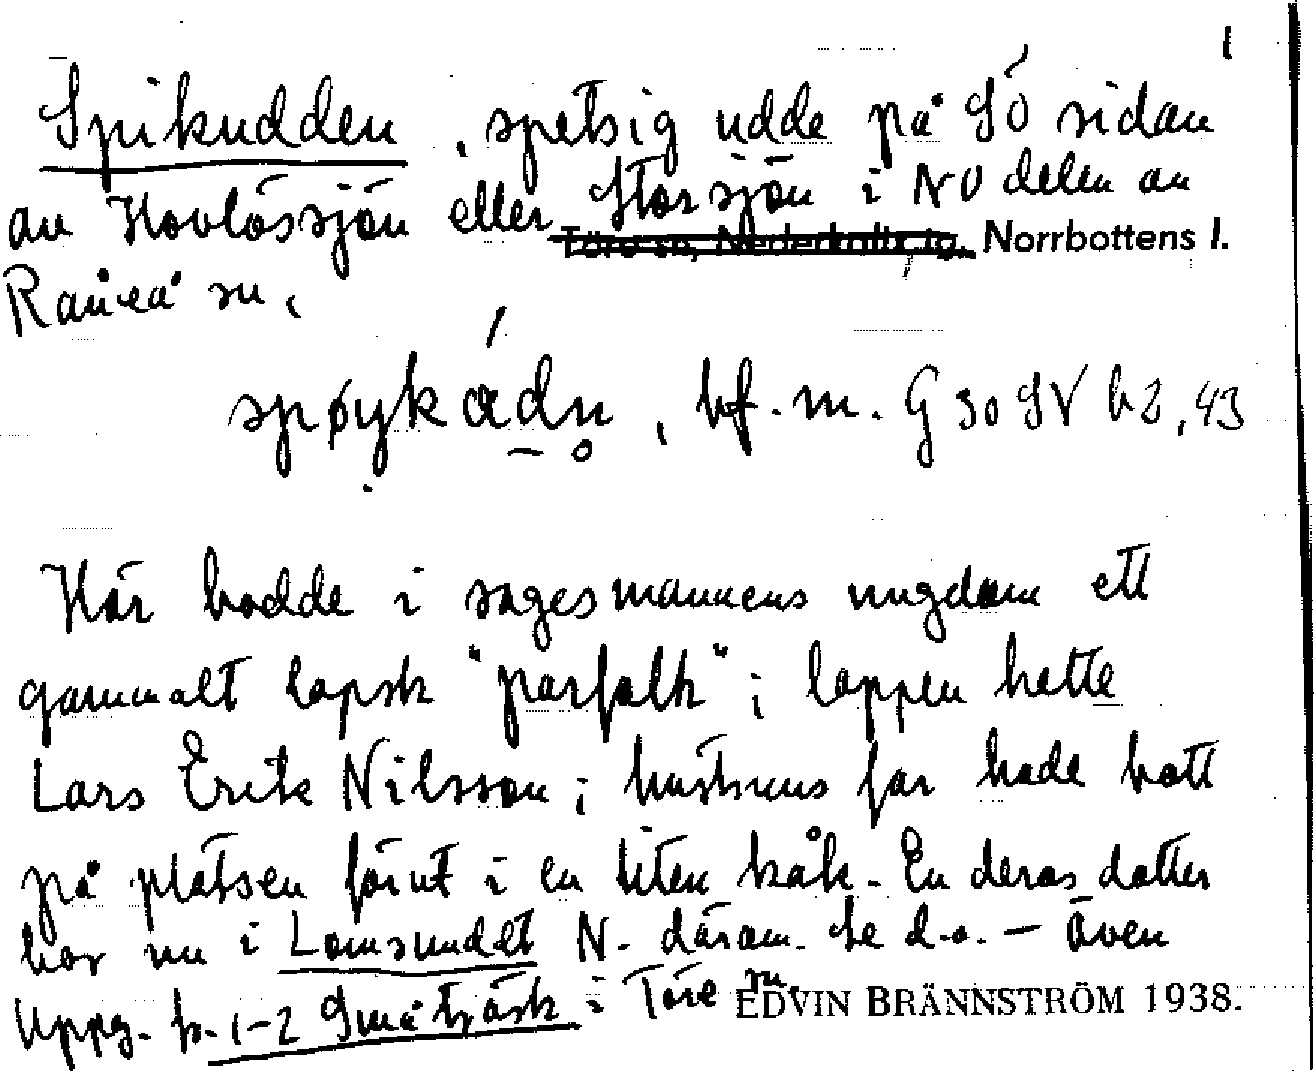 1
Spikudden, spetsig udde på SÖ sidan
av Hovlössjön eller Storsjön i NV delen av
Töre sn, Nederkalix tg. Norrbottens l.
Råneå sn.
spøykádn̥, bf. m. G 30 SV b2, 43
Här bodde i sagesmannens ungdom ett
gammalt lapsk "parfolk"; lappen hette
Lars Erik Nilsson; hustruns far hade bott
på platsen förut i en liten kåk. En deras dotter
bor nu i Lomsundet N. därom. Se d.o. — Även
Uppg. b. 1-2 Småträsk i Töre sn.
EDVIN BRÄNNSTRÖM 1938.